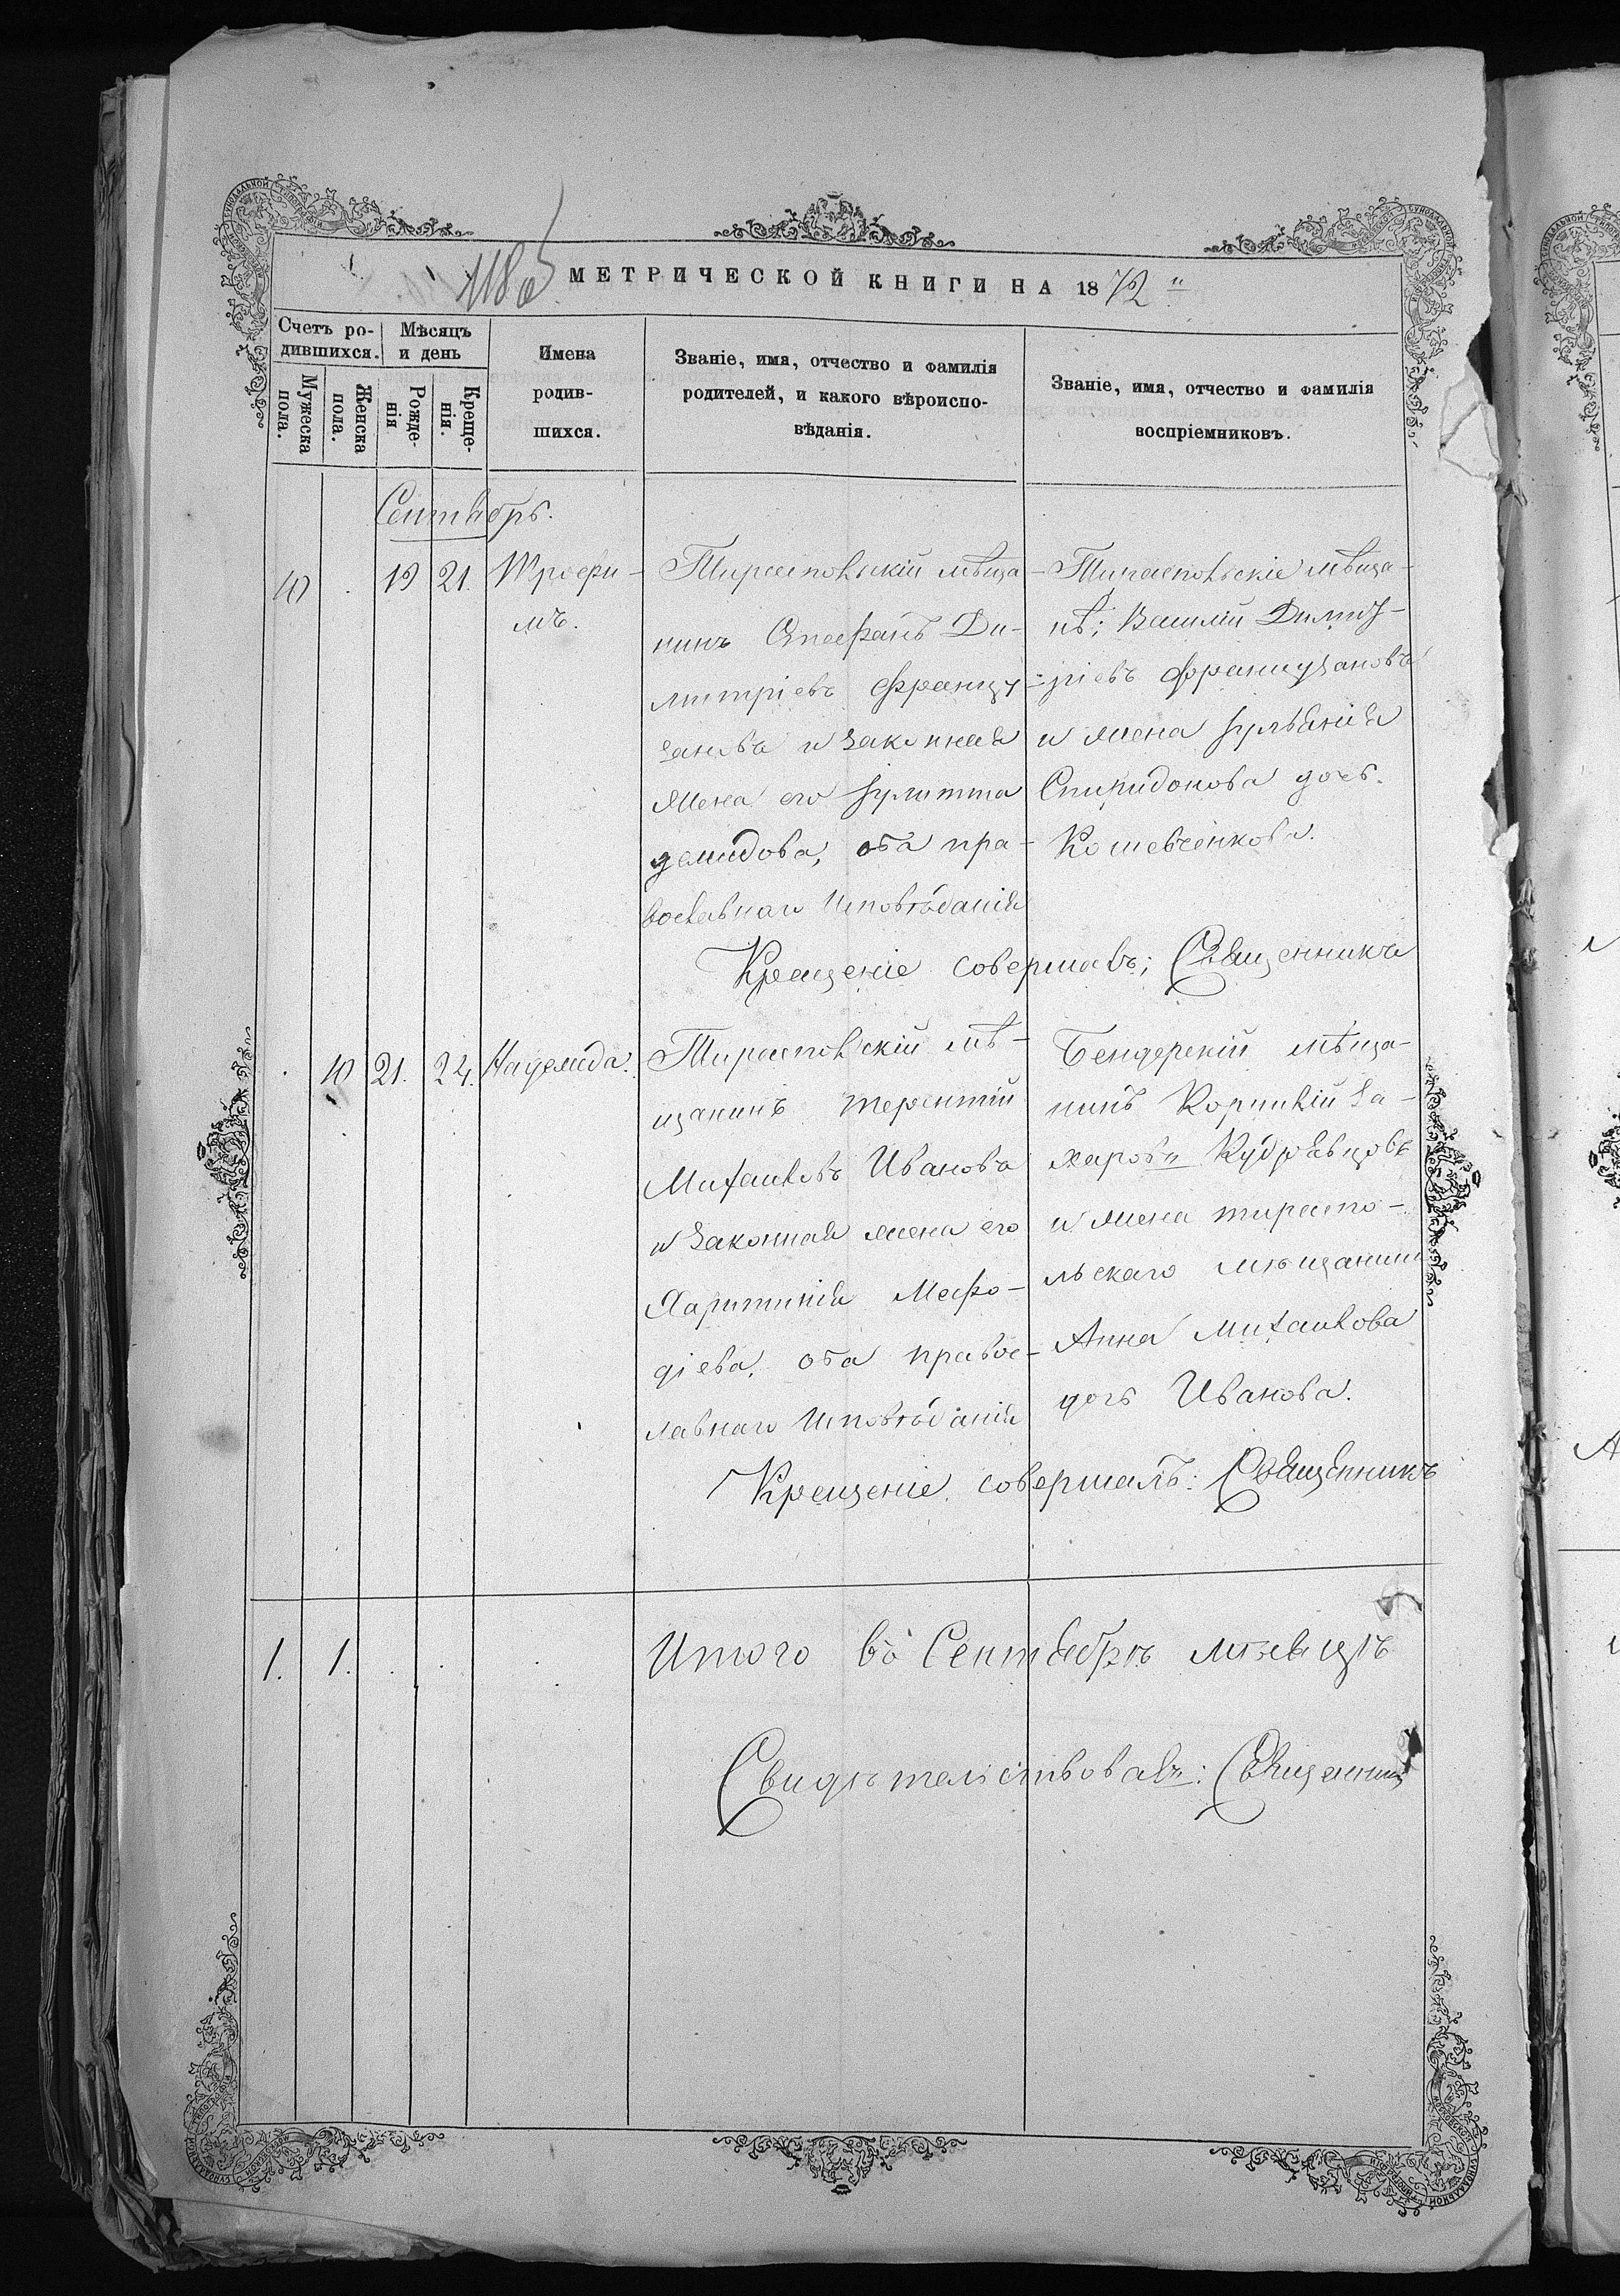 118 об
МЕТРИЧЕСКОЙ КНИГИ НА 1872
Счетъ ро-
дившихся.
Мѣсяцъ
и день
Мужеска
пола.
Женска
пола.
Рожде-
нія
Креще-
нія.
Имена
родив-
шихся.
Званіе, имя, отчество и фамилія
родителей, и какого вѣроиспо-
вѣданія.
Званіе, имя, отчество и фамилія
воспріемниковъ.
Сентябрь.
10 . 19 21. Трофи-
мъ.
Тираспольскій мѣща-
нинъ Стефанъ Ди-
митріевъ Францу-
зановъ и законная
жена его Іулитта
демидова, оба пра-
вославнаго исповѣданія
Тираспольскіе мѣща-
нѣ; Василій Димит-
ріевъ Французановъ
и жена Іуліанія
Спиридонова дочь.
Кошевченкова.
Крещеніе совершалъ; Священникъ
. 10 21. 24. Надежда.
Тираспольскій мѣ-
щанинъ Терентій
Михайловъ Ивановъ
и законная жена его
Харитинія Мефо-
діева, оба правос-
лавнаго исповѣданія
Бендерскій мѣща-
нинъ Корнилій За-
харовъ Кудрявцовъ
и жена тираспо-
льскаго мѣщанина
Анна Михайлова
дочь Иванова.
Крещеніе совершалъ: Священникъ
1. 1. . . . Итого въ Сентябрѣ мѣсяцѣ
Свидѣтельствовалъ: Священникъ